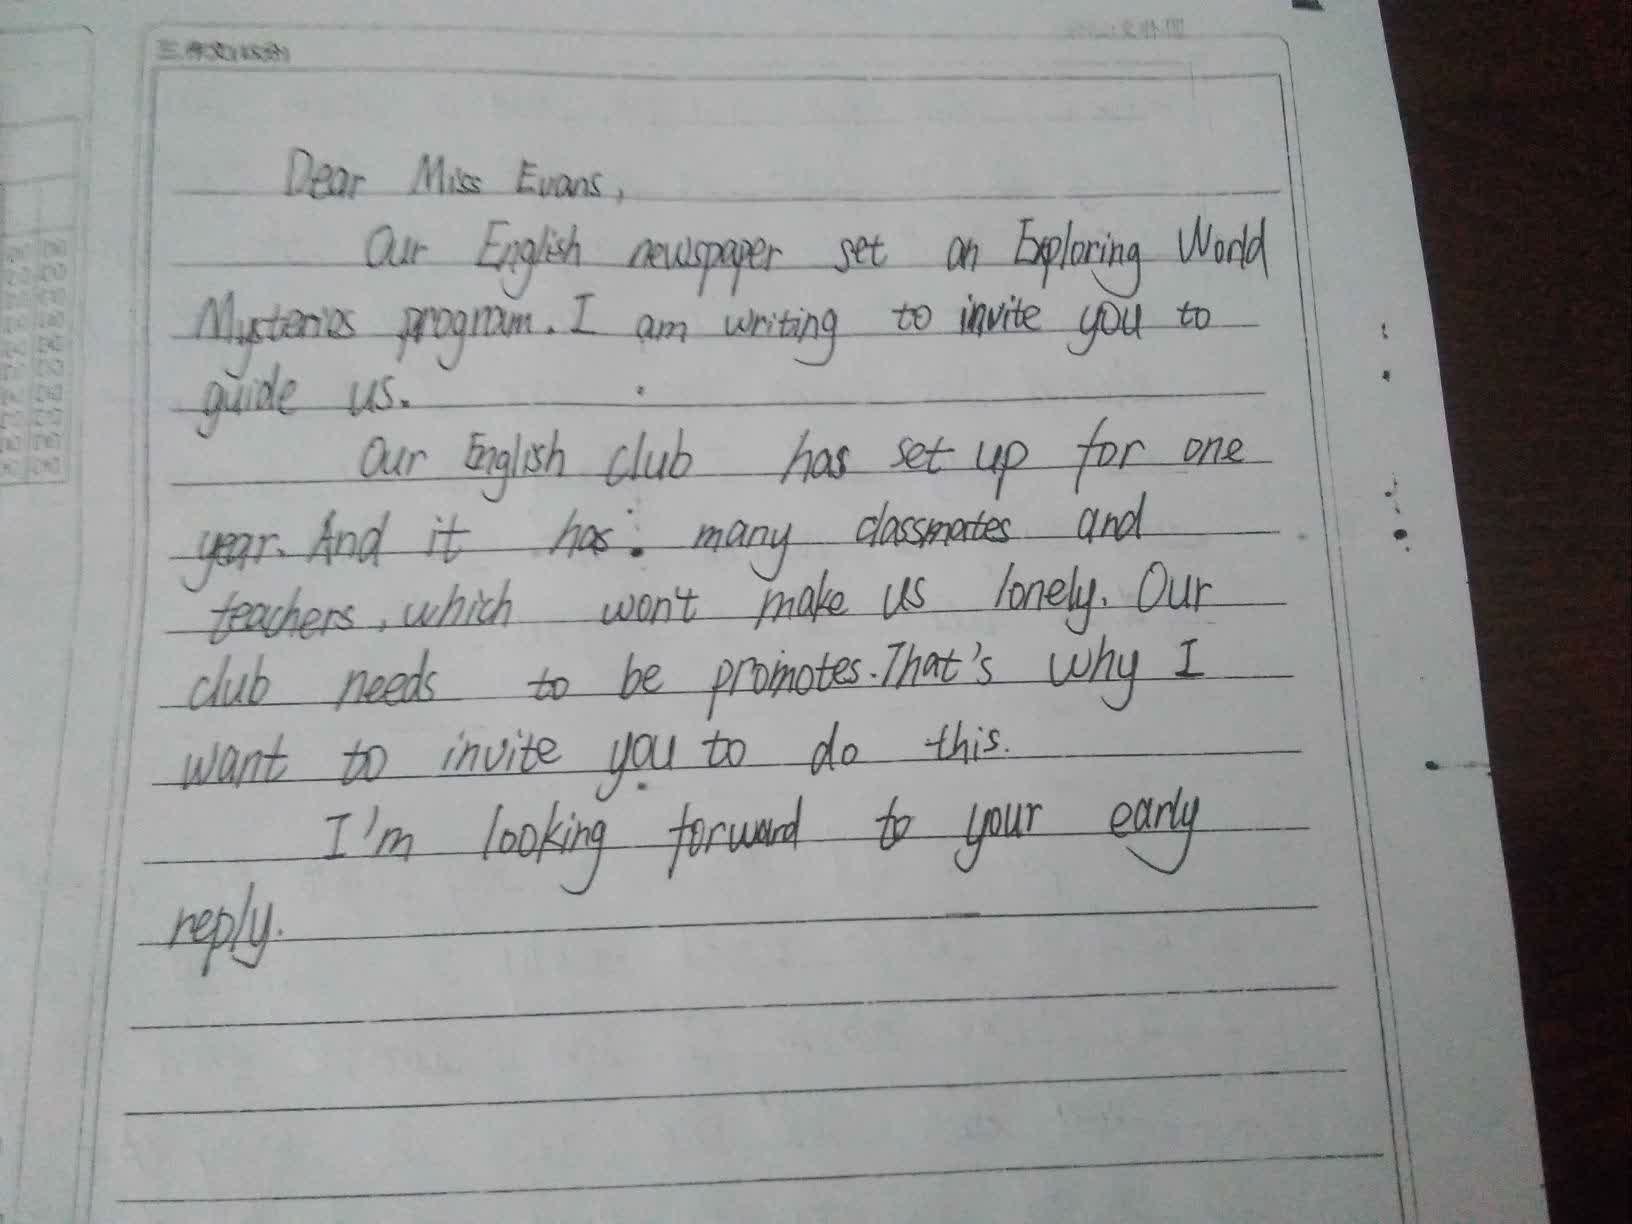 三.作文(15分)
Dear Miss Evans,
Our English newspaper set an Exploring World
Mysteries program. I am writing to invite you to
guide us.
Our English club has set up for one
year. And it has many classmates and
teachers, which won't make us lonely. Our
club needs to be promotes. That's why I
want to invite you to do this.
I'm looking forward to your early
reply.